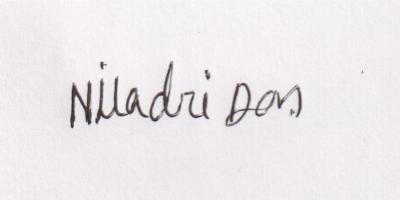 Niladri Das